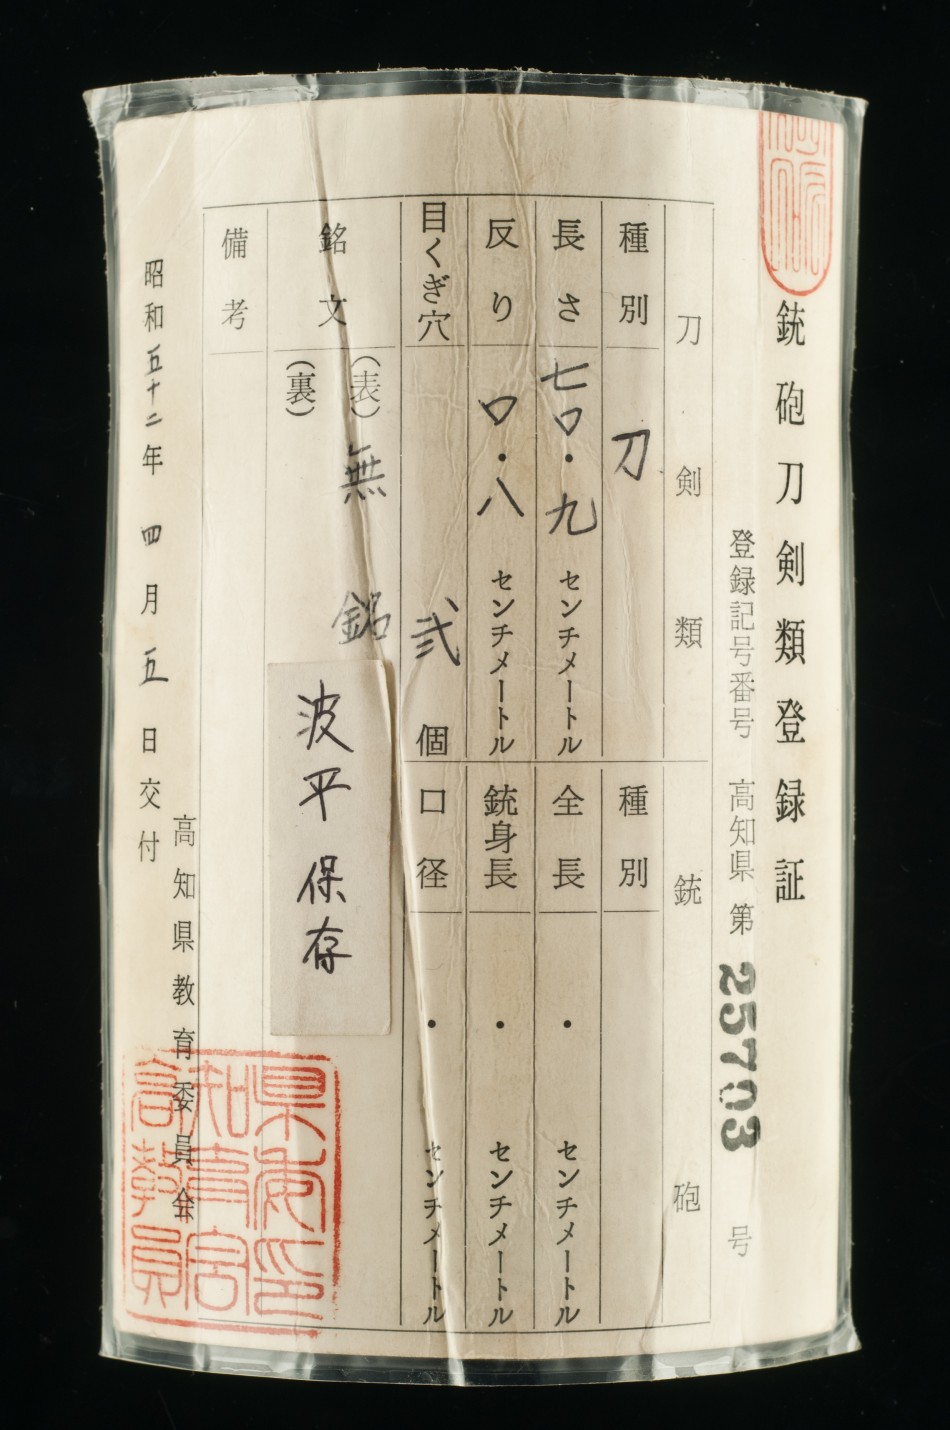 銃砲刀剣類登録証
登録記号番号 高知県 第 25703 号
刀剣類
種別 刀
長さ 七〇・九 センチメートル
反り 〇・八 センチメートル
目くぎ穴 弐 個
銘文 (表) 無銘
(裏)
波平 保存
備考
銃砲
種別
全長 ・ センチメートル
銃身長 ・ センチメートル
口径 ・ センチメートル
昭和五十二年 四月五日交付
高知県教育委員会